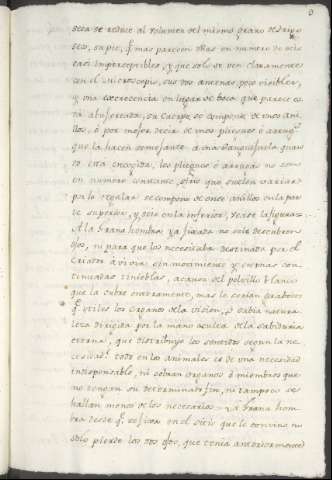 seca se reduce al volumen del mismo grano de trigo
seco, su pie, q.e mas parecen ellas en numero de seis
casi imperceptibles, y que solo se ven claramente
con el microscopio, sus dos antenas, poco visibles,
y una excrecencia en lugar de boca que parece es
tá abujereada, su cuerpo se compone de unos ani
llos, ó por mejor decir de unos pliegues ó arrugas
que la hacen semejante á una Sanguijuela quan
to está encogida, los pliegues ó arrugas no son
en numero constante, sino que suelen variar
por lo regular se compone de once anillos en la par
te superior, y seis en la inferior, vease la figura=
A la grana hembra ya fixada no se la descubren
ojos, ni para que los necesitaba destinada por el
Criador á vivir en un movimiento y eternas con
tinuadas tinieblas, acausa del polvillo blanco
que la cubre enteramente, mas le serían gravosos
q.e utiles los organos de la vision, ó sabia natura
leza dirigida por la mano oculta de la Sabiduria
eterna, que distribuyo los sentidos segun la ne
cesidad: todo en los animales es de una necesidad
indispensable, ni sobran organos ó miembros que
no tengan su determinado fin, ni tampoco se
hallan menos de los necesarios= La grana hem
bra desde q.e se fixa en el sitio que le convino no
solo pierde los dos ojos, que tenia anteriormente